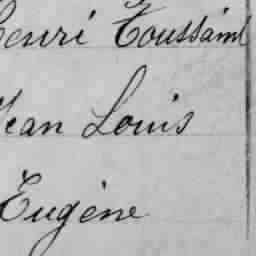 Henri Toussaint
Jean Louis
Eugène